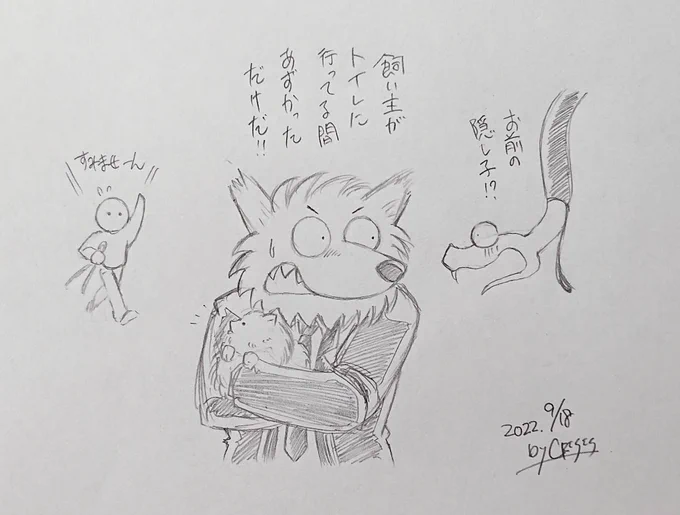 お前の
隠し子!?
飼い主が
トイレに
行ってる間
あずかった
だけだ!!
すみませーん
2022. 9/18
by